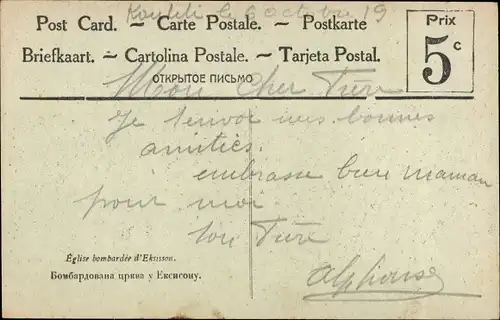 le 6 octobre 19
Post Card. – Carte Postale. – Postkarte
Briefkaart. – Cartolina Postale. – Tarjeta Postal.
ОТКРЫТОЕ ПИСЬМО
Prix
5 c
Mon Cher Frère
Je t'envoi mes bonnes
amitiés.
embrasse bien maman
pour moi
ton Frère
Alphonse
Église bombardée d'Eksisson.
Бомбардована црква у Ексисону.